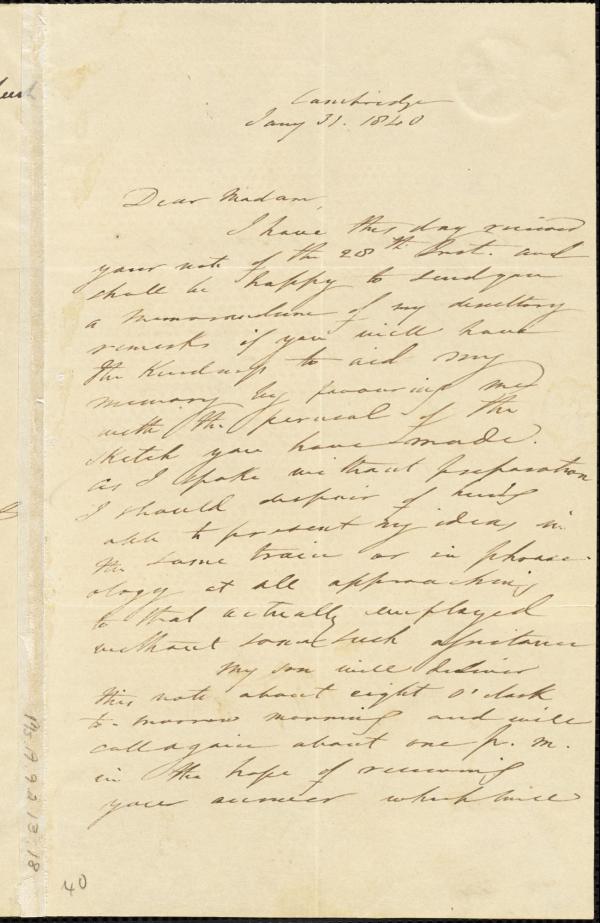 Cambridge
Jany 31. 1840
Dear Madam,
I have this day received
your note of the 28th Inst. and
shall be happy to send you
a memorandum of my desultory
remarks if you will have
the kindness to aid my
memory by favouring me
with the perusal of the
sketch you have made.
as I spoke without preparation
I should despair of being
able to present my ideas in
the same train or in phrase-
ology at all approaching
to that actually employed
without some such assistance
My son will deliver
this note about eight o'clock
to-morrow morning and will
call again about one p. m.
in the hope of receiving
your answer which will
40